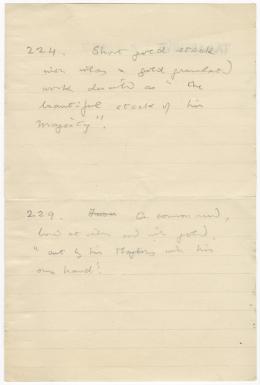 224. Short gold stick
with inlay & gold granulated
work described as "the
beautiful stick of his
Majesty".
229. A common reed,
at and with gold,
"cut by his Majesty with his
own hand".